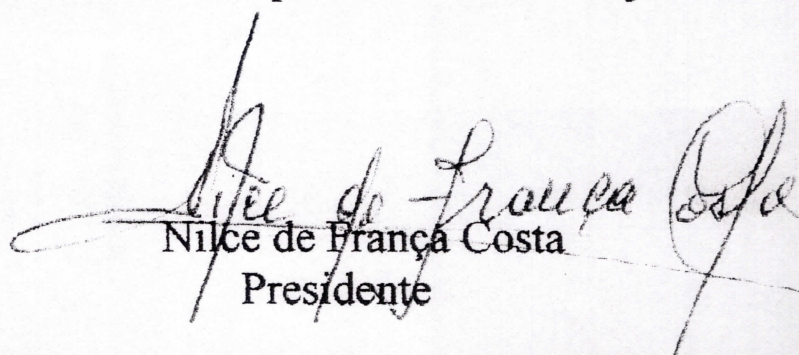 Nilce de França Costa
Nilce de França Costa
Presidente